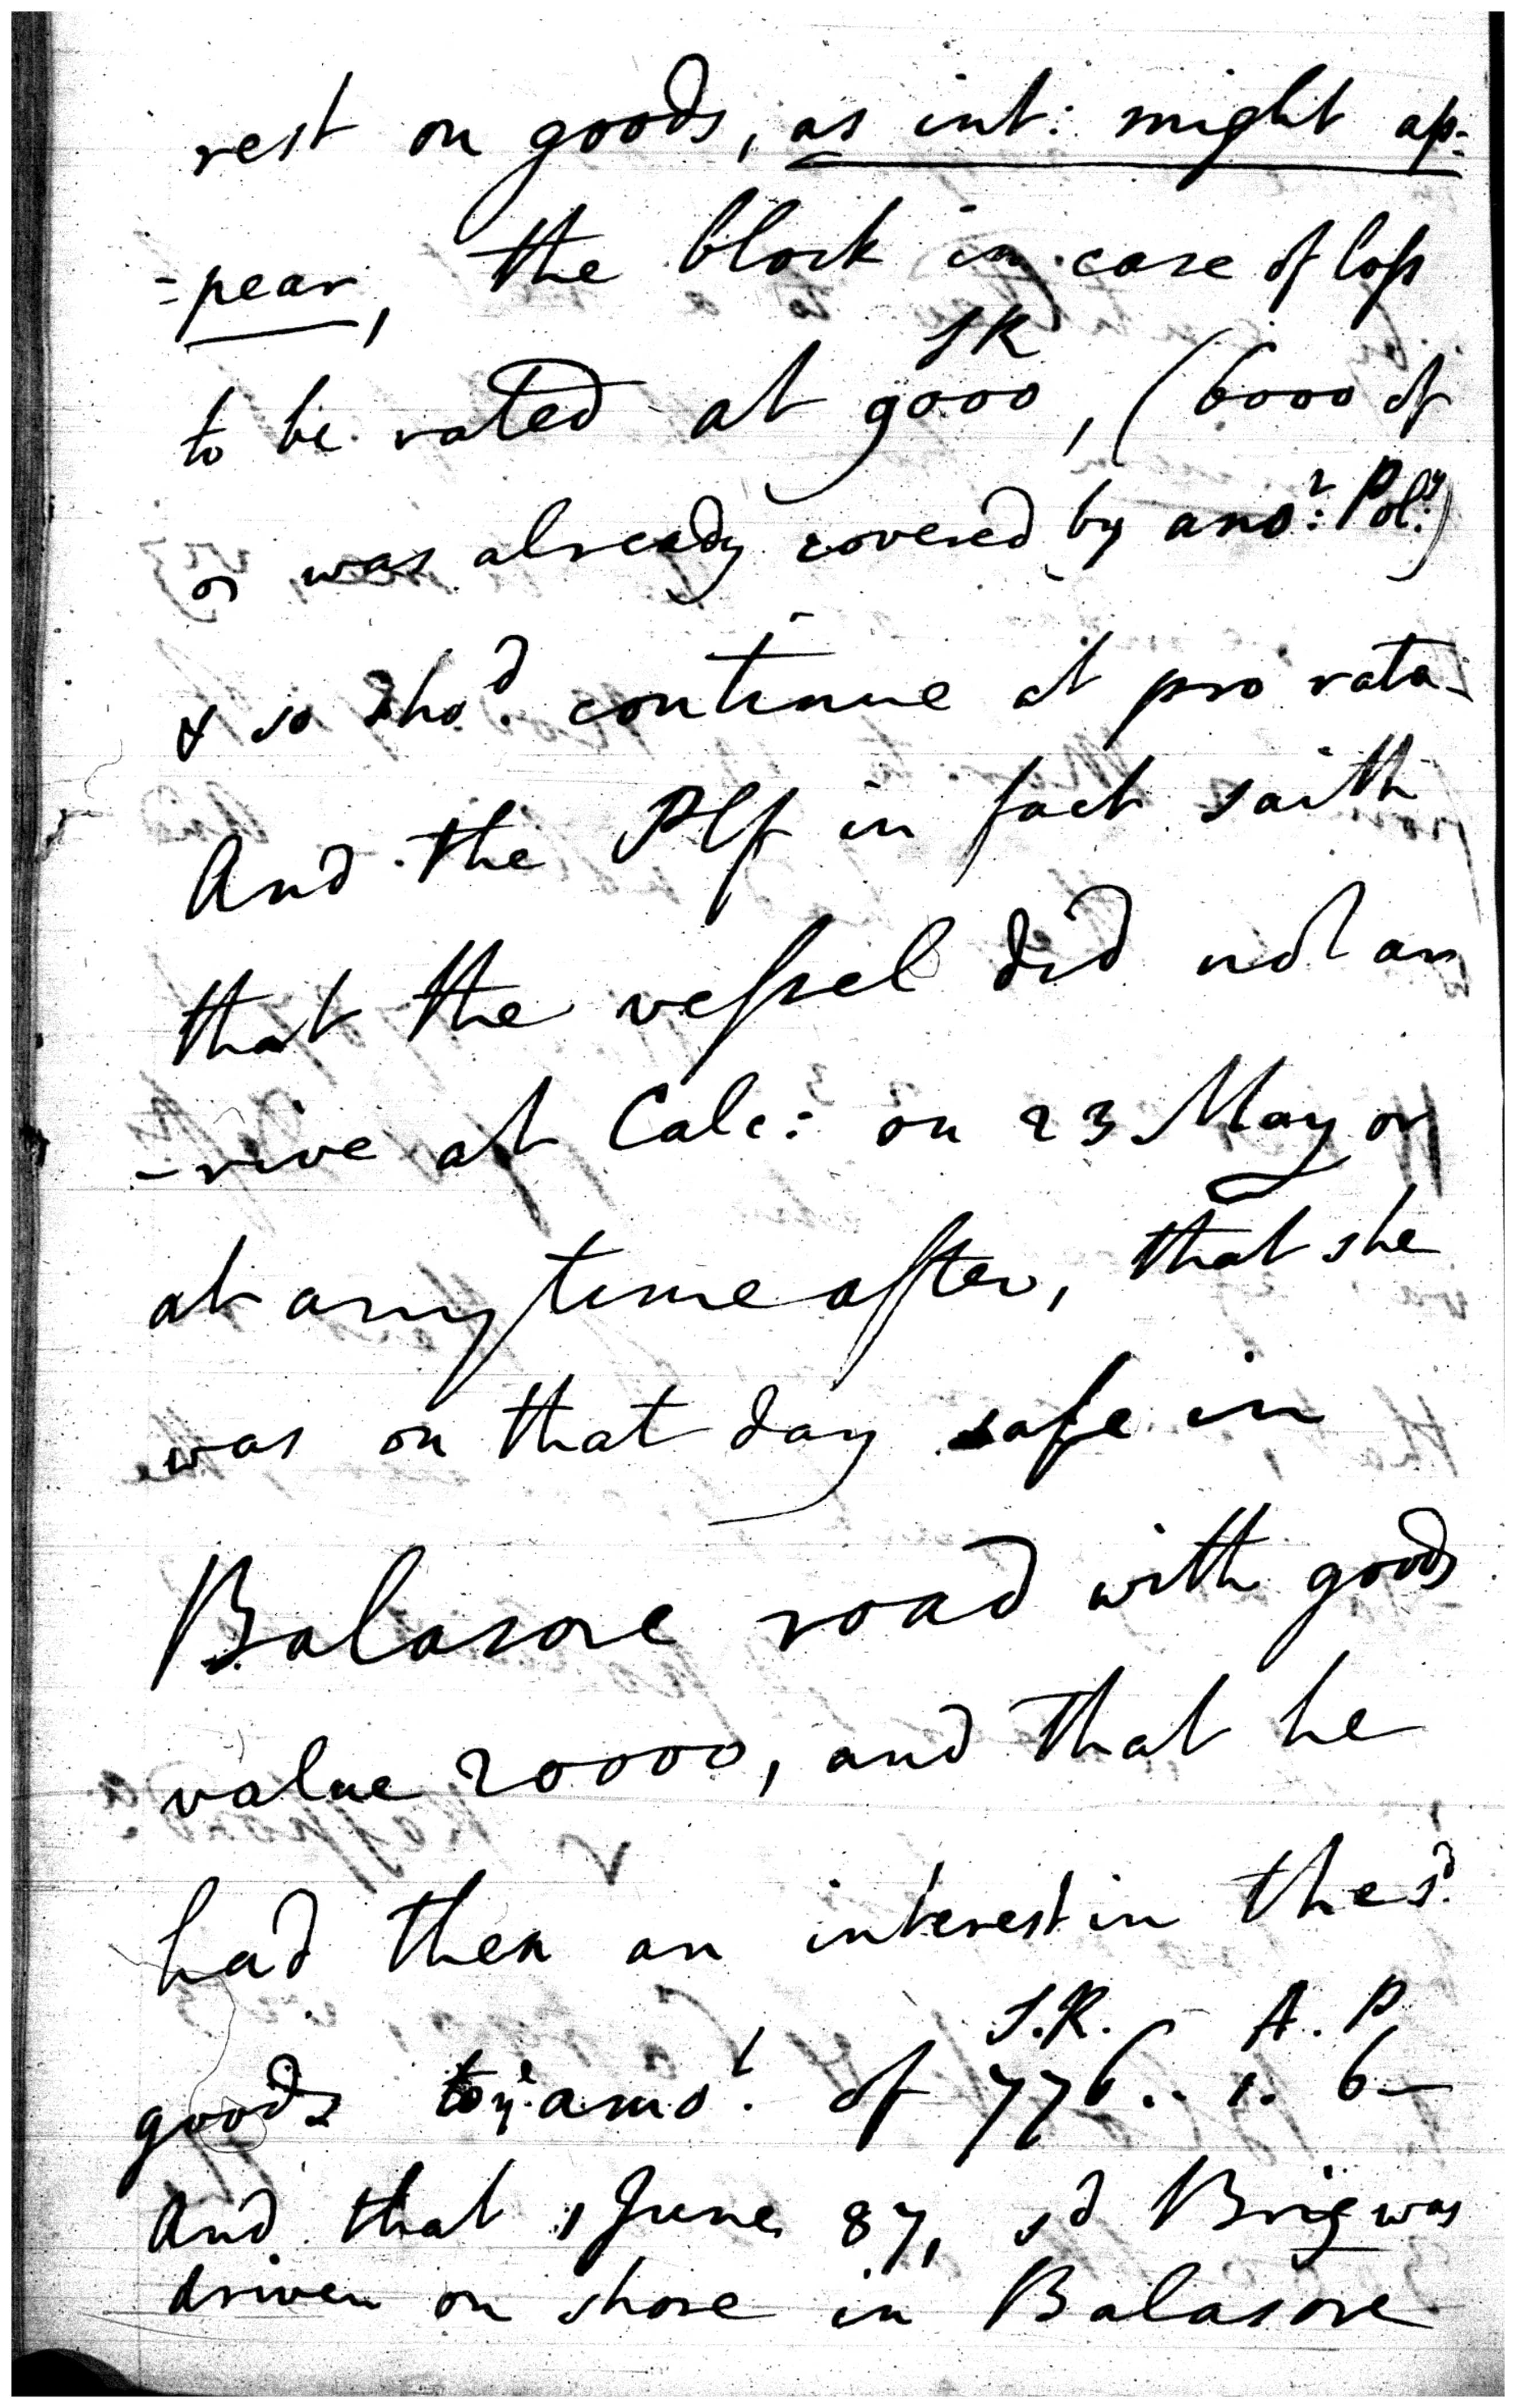 rest on goods, as int: might ap-
=pear, the block in case of loss
to be rated at 9000 SR, (6000 of
was already covered by ano:r Pol:y)
& so sho:d continue at pro rata-
And the Plf in fact saith
that the vessel did not ar
-rive at Calc: on 23 May or
at any time after, that she
was on that day safe in
Balasore road with goods
value 20000, and that he
had then an interest in the s:d
S.R. A. P
goods to ye amo:t of 776.. 1. 6-
And that 1 June 87, sd Brig was
driven on shore in Balasore